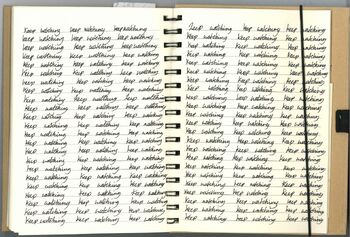 Keep watching Keep watching Keep watching
Keep watching Keep watching Keep watching
Keep watching Keep watching Keep watching
Keep watching Keep watching Keep watching
Keep watching Keep watching Keep watching
Keep watching Keep watching Keep watching
Keep watching Keep watching Keep watching
Keep watching Keep watching Keep watching
Keep watching Keep watching Keep watching
Keep watching Keep watching Keep watching
Keep watching Keep watching Keep watching
Keep watching Keep watching Keep watching
Keep watching Keep watching Keep watching
Keep watching Keep watching Keep watching
Keep watching Keep watching Keep watching
Keep watching Keep watching Keep watching
Keep watching Keep watching Keep watching
Keep watching Keep watching Keep watching
Keep watching Keep watching Keep watching
Keep watching Keep watching Keep watching
Keep watching Keep watching Keep watching
Keep watching Keep watching Keep watching
Keep watching Keep watching Keep watching
Keep watching Keep watching Keep watching
Keep watching Keep watching Keep watching
Keep watching Keep watching Keep watching
Keep watching Keep watching Keep watching
Keep watching Keep watching Keep watching
Keep watching Keep watching Keep watching
Keep watching Keep watching Keep watching
Keep watching Keep watching Keep watching
Keep watching Keep watching Keep watching
Keep watching Keep watching Keep watching
Keep watching Keep watching Keep watching
Keep watching Keep watching Keep watching
Keep watching Keep watching Keep watching
Keep watching Keep watching Keep watching
Keep watching Keep watching Keep watching
Keep watching Keep watching Keep watching
Keep watching Keep watching Keep watching
Keep watching Keep watching Keep watching
Keep watching Keep watching Keep watching
Keep watching Keep watching Keep watching
Keep watching Keep watching Keep watching
Keep watching Keep watching Keep watching
Keep watching Keep watching Keep watching